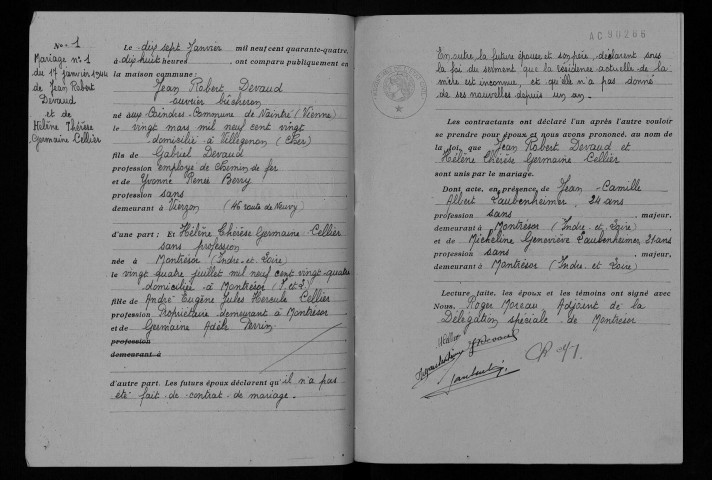 No 1
Mariage n° 1
du 17 janvier 1944
de Jean Robert
Devaud
et de
Hélène Thérèse
Germaine Cellier
Le dix sept Janvier mil neuf cent quarante-quatre,
à dix huit heures, ont comparu publiquement en
la maison commune:
Jean Robert Devaud
ouvrier bûcheron
né aux Coindres-Commune de Naintré (Vienne)
le vingt mars mil neuf cent vingt
domicilié à Villegenon (Cher)
fils de Gabriel Devaud
profession employé de Chemin de fer
et de Yvonne Renée Berry
profession sans
demeurant à Vierzon (46 route de Neuvy)
d'une part; Et Hélène Thérèse Germaine Cellier
sans profession
née à Montrésor (Indre et Loire)
le vingt quatre juillet mil neuf cent vingt quatre
domiciliée à Montrésor (I. et L.)
fille de André Eugène Jules Hercule Cellier
profession Propriétaire demeurant à Montrésor
et de Germaine Adèle Perrin
profession
demeurant à
d'autre part. Les futurs époux déclarent qu'il n'a pas
été fait de contrat de mariage.
AC90266
En outre la future épouse et son père, déclarent sous
la foi du serment que la résidence actuelle de la
mère est inconnue, et qu'elle n'a pas donné
de ses nouvelles depuis un an.
Les contractants ont déclaré l'un après l'autre vouloir
se prendre pour époux et nous avons prononcé, au nom de
la loi, que Jean Robert Devaud et
Hélène Thérèse Germaine Cellier
sont unis par le mariage.
Dont acte, en présence, de Jean-Camille
Albert Laubenheimer, 24 ans
profession sans, majeur.
demeurant à Montrésor (Indre et Loire)
et de Micheline Geneviève Laubenheimer, 21 ans
profession sans, majeur.
demeurant à Montrésor (Indre et Loire)
Lecture faite, les époux et les témoins ont signé avec
Nous, Roger Moreau Adjoint de la
Délégation spéciale de Montrésor
HCellier
JRDevaud